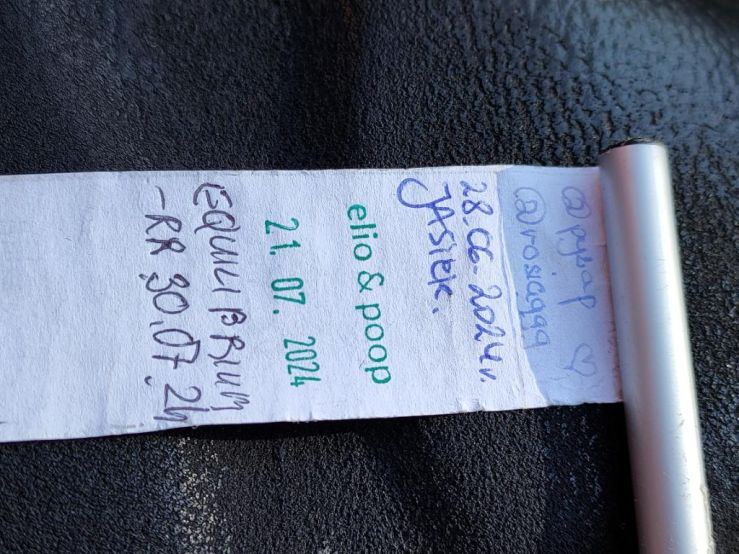 @pyrap ♡
@rosiaggg
28.06.2024r.
JASIEK.
elio & poop
21.07.2024
EQUILIBRIUM
-RR 30.07.24